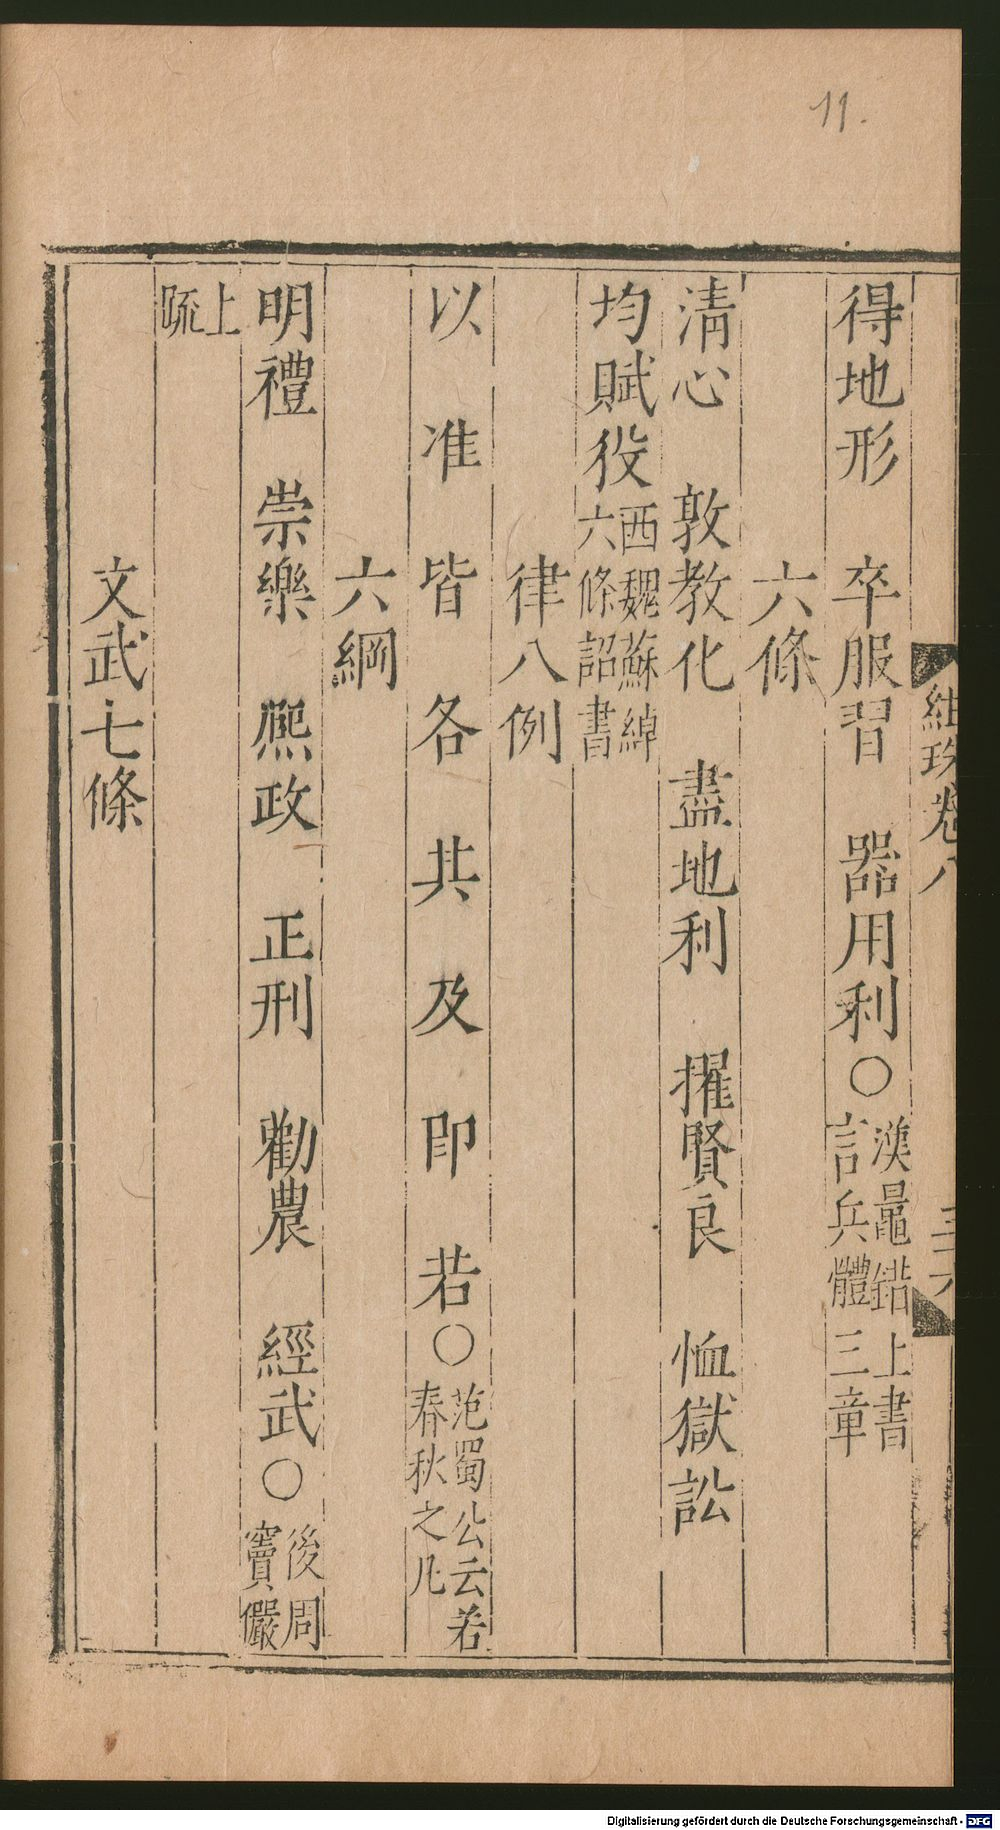 11.
紺珠卷八
得地形　卒服習　器用利○漢鼂錯上書言兵體三章
六條
淸心　敦教化　盡地利　擢賢良　恤獄訟
均賦役西魏蘇綽六條詔書
律八例
以　准　皆　各　共　及　卽　若○范蜀公云若春秋之凡
六綱
明禮　崇樂　熈政　正刑　勸農　經武○後周竇儼
上疏
文武七條
Digitalisierung gefördert durch die Deutsche Forschungsgemeinschaft - DFG